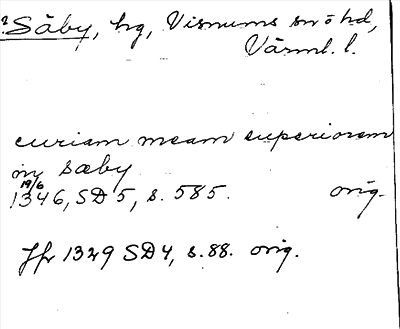 ? Säby, hg, Visnums snö hd,
Värml. l.
curiam meam superiorem
in sæby
19/6
1346, SD 5, s. 585. orig.
Jfr 1329 SD 4, s. 88. orig.